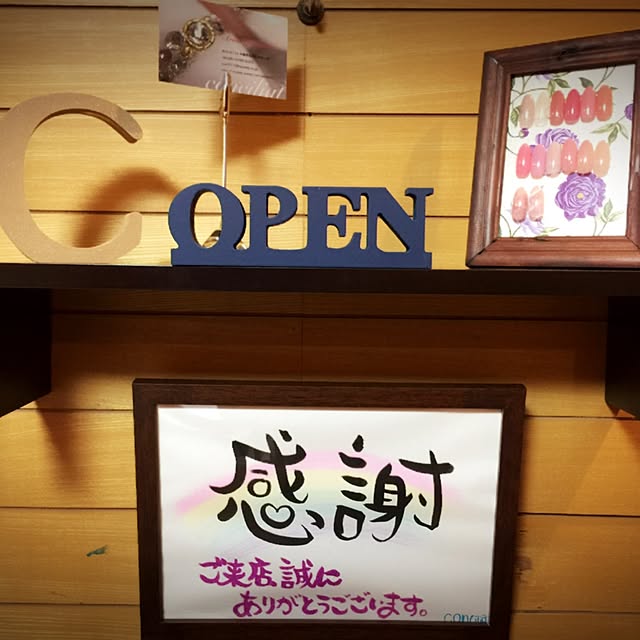 C
OPEN
感謝
ご来店誠に
ありがとうございます。